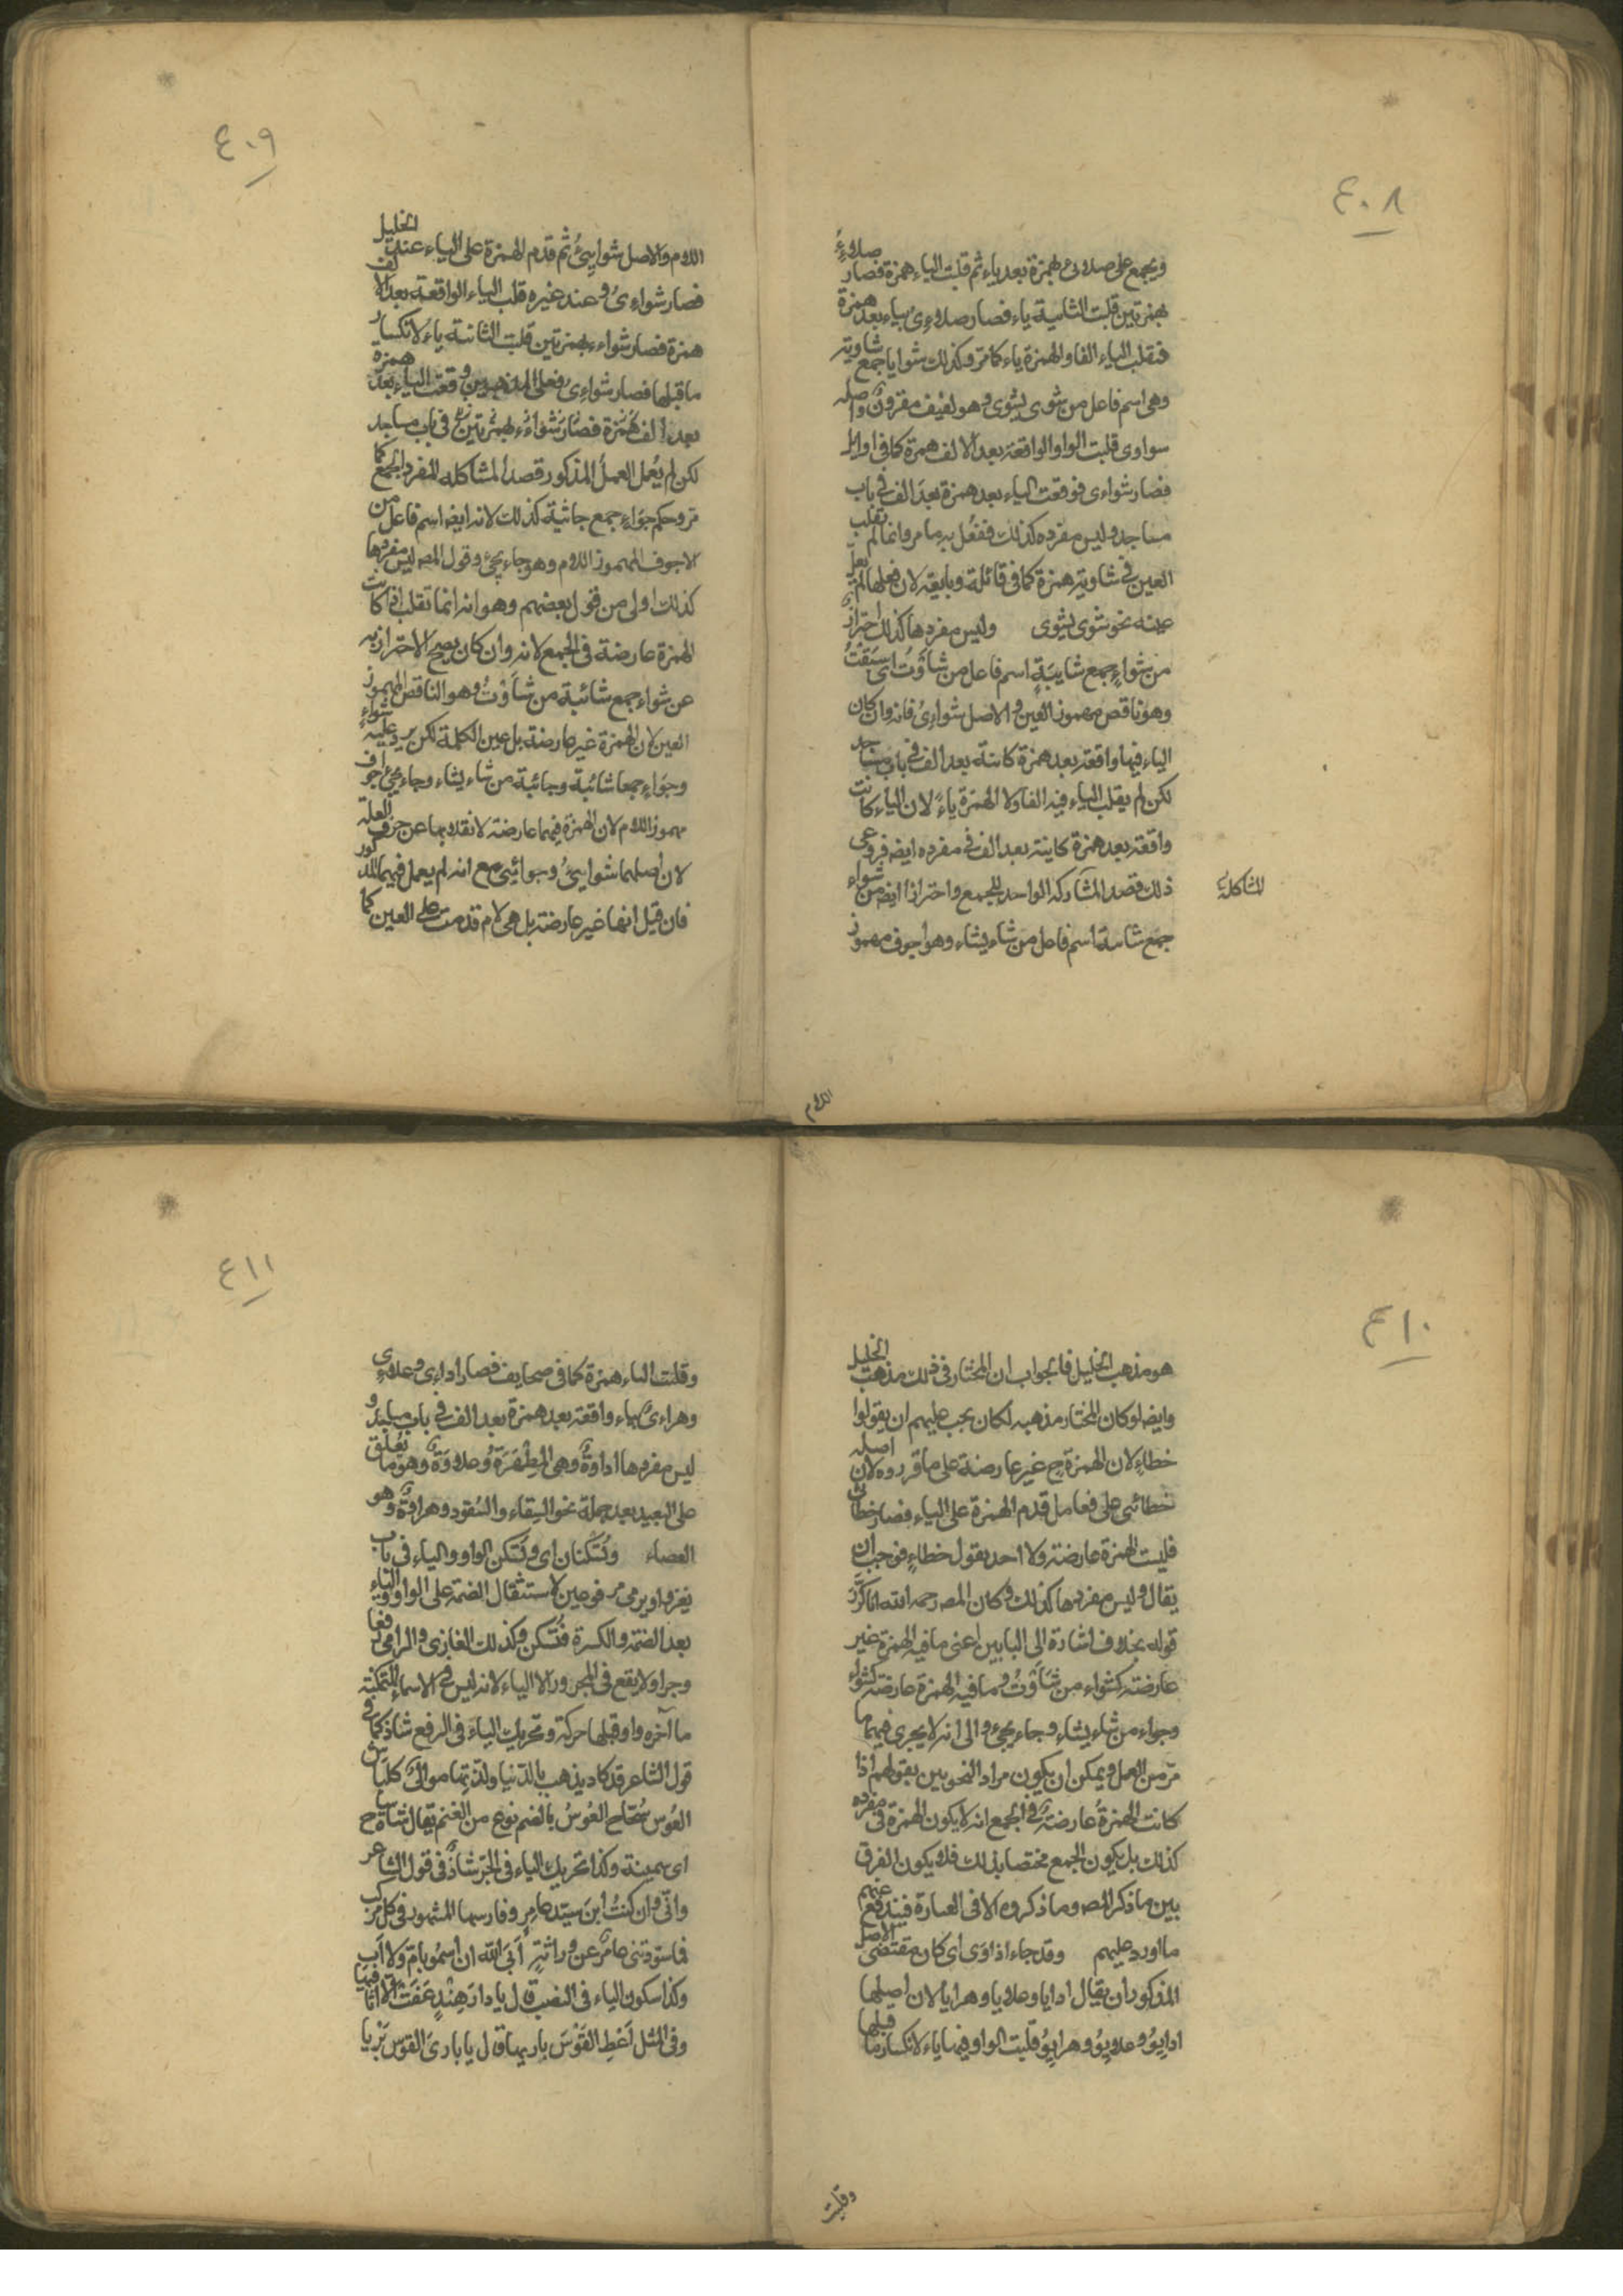 ٤٠٨
ويجمع على صلائىء بهمزة بعد ياء ثم قلبت الياء همزة فصار صلاءء
بهمزتين قلبت الثانية ياء فصار صلاءى بياء بعد همزة
فتقلب الياء الفا والهمزة ياء كما مر وكذلك شوايا جمع شاوية
وهى اسم فاعل من شوى يشوى وهو لفيف مقرون واصله
سواوى قلبت الواو الواقعة بعد الالف همزة كما فى اوايل
فصار شواءى فوقعت الياء بعد همزة بعد الف فى باب
مساجد وليس مفرده كذلك ففعل به ما مر وانما لم تقلب
العين فى شاوية همزة كما فى قائلة وبايعة لان فعلها لم يعل
عينه نحو شوى يشوى وليس مفردها كذلك احتراز
من شواءٍ جمع شايبة اسم فاعل من شأوت اى سبقت
وهو ناقص مهموز العين والاصل شواءى فانه وان كان
الياء فيها واقعة بعد همزة كائنة بعد الف فى باب مساجد
لكن لم يقلب الياء فيه الفا ولا الهمزة ياءً لان الياء كانت
واقعة بعد همزة كاينة بعد الف فى مفرده ايضا فروعى
ذلك قصد المشاركة الواحد للجمع واحترازا ايضا من شواء
للمشاكلة
جمع شائية اسم فاعل من شاء يشاء وهو اجوف مهموز
اللام
٤٠٩
اللام والاصل شوايئ ثم قدم الهمزة على الياء عند الخليل
فصار شواءى وعند غيره قلب الياء الواقعة بعد الالف
همزة فصار شواءء بهمزتين قلبت الثانية ياءً لانكسار
ما قبلها فصار شواءى فعلى المذهبين وقعت الياء بعد همزة
بعد الف همزة فصار شواءء بهمزتين فى باب مساجد
لكن لم يعمل العمل المذكور قصدا لمشاكلة المفرد الجمع كما
مر وحكم جواء جمع جائية كذلك لانه ايضا اسم فاعل من
الاجوف المهموز اللام وهو جاء يجئ وقول المصـ ليس مفردها
كذلك اولى من قول بعضهم وهو انه انما تقلب اذا كانت
الهمزة عارضة فى الجمع لانه وان كان يصح الاحتراز به
عن شواء جمع شائية من شأوت وهو الناقص المهموز
العين لان الهمزة غير عارضة بل عين الكلمة لكن يرد عليه شواءٍ
وجواءٍ جمعا شائية وجائية من شاء يشاء وجاء يجئ اجوف
مهموز اللام لان الهمزة فيهما عارضة لانقلابها عن حرف العلة
لان اصلهما شوايئ وجوائئ مع انه لم يعمل فيهما المذكور
فان قيل انها غير عارضة بل هى لام قدمت على العين كما
٤١٠
هو مذهب الخليل فالجواب ان المختار فى ذلك مذهب الخليل
وايضا لو كان المختار مذهبه لكان يجب عليهم ان يقولوا
خطاءٍ لان الهمزة ح غير عارضة على ما قرروه لان اصله
خطائئ على فعايل قدم الهمزة على الياء فصار خطائى
فليت الهمزة عارضة ولا احد يقول خطاءٍ فوجب ان
يقال وليس مفردها كذلك وكان المصـ رحمه الله انما كرر
قوله بخلاف اشارة الى البابين اعنى ما فيه الهمزة غير
عارضة كشواء من شأوت وما فيه الهمزة عارضة كشواء
وجواء من شاء يشاء وجاء يجئ والى انه لا يجرى فيهما ما
مر من العمل ويمكن ان يكون مراد النحويين بقولهم اذا
كانت الهمزة عارضة فى الجمع انه لا يكون الهمزة فى مفرده
كذلك بل يكون الجمع مختصا بذلك فلا يكون الفرق
بين ما ذكر المصـ وما ذكروه الا فى العبارة فيندفع عنهم
ما اورد عليهم وقد جاء اداوى اى كان مقتضى الاصل
المذكور ان يقال ادايا وعلايا وهرايا لان اصلها
ادايو وعلايو وهرايو قلبت الواو فيها ياء لانكسار ما قبلها
وقلبت
٤١١
وقلبت الياء همزة كما فى صحايف فصار اداءى وعلاءى
وهراءى بياء واقعة بعد همزة بعد الف فى باب مساجد و
ليس مفردها اداوة وهى المطهرة وعلاوة وهو ما يعلق
على البعير بعد حمله نحو السقاء والسفود وهراوة وهو
العصاء وتسكنان اى وتسكن الواو والياء فى باب
يغزو ويرمى مرفوعين لاستثقال الضمة على الواو والياء
بعد الضمة والكسرة فتسكن وكذلك الغازى والرامى رفعا
وجرا ولا يقع فى المجرور الا الياء لانه ليس فى الاسماء المتمكنة
ما آخره واو قبلها حركة وتحريك الياء فى الرفع شاذ كما فى
قول الشاعر قد كاد يذهب بالدنيا ولذتها موالى ككباش
العوس سحاح العوس بالضم نوع من الغنم يقال شاة ساح
اى سمينة وكذا تحريك الياء فى الجر شاذ فى قول الشاعر
وانى وان كنت ابن سيد عامر وفارسها المشهور فى كل موكب
فما سودتنى عامر عن وراثة ابى الله ان اسمو بام ولا اب
وكذا سكون الياء فى النصب قال يا دار هند عفت الا اثافيها
وفى المثل اعط القوس باريها قال يا بارى القوس بريا